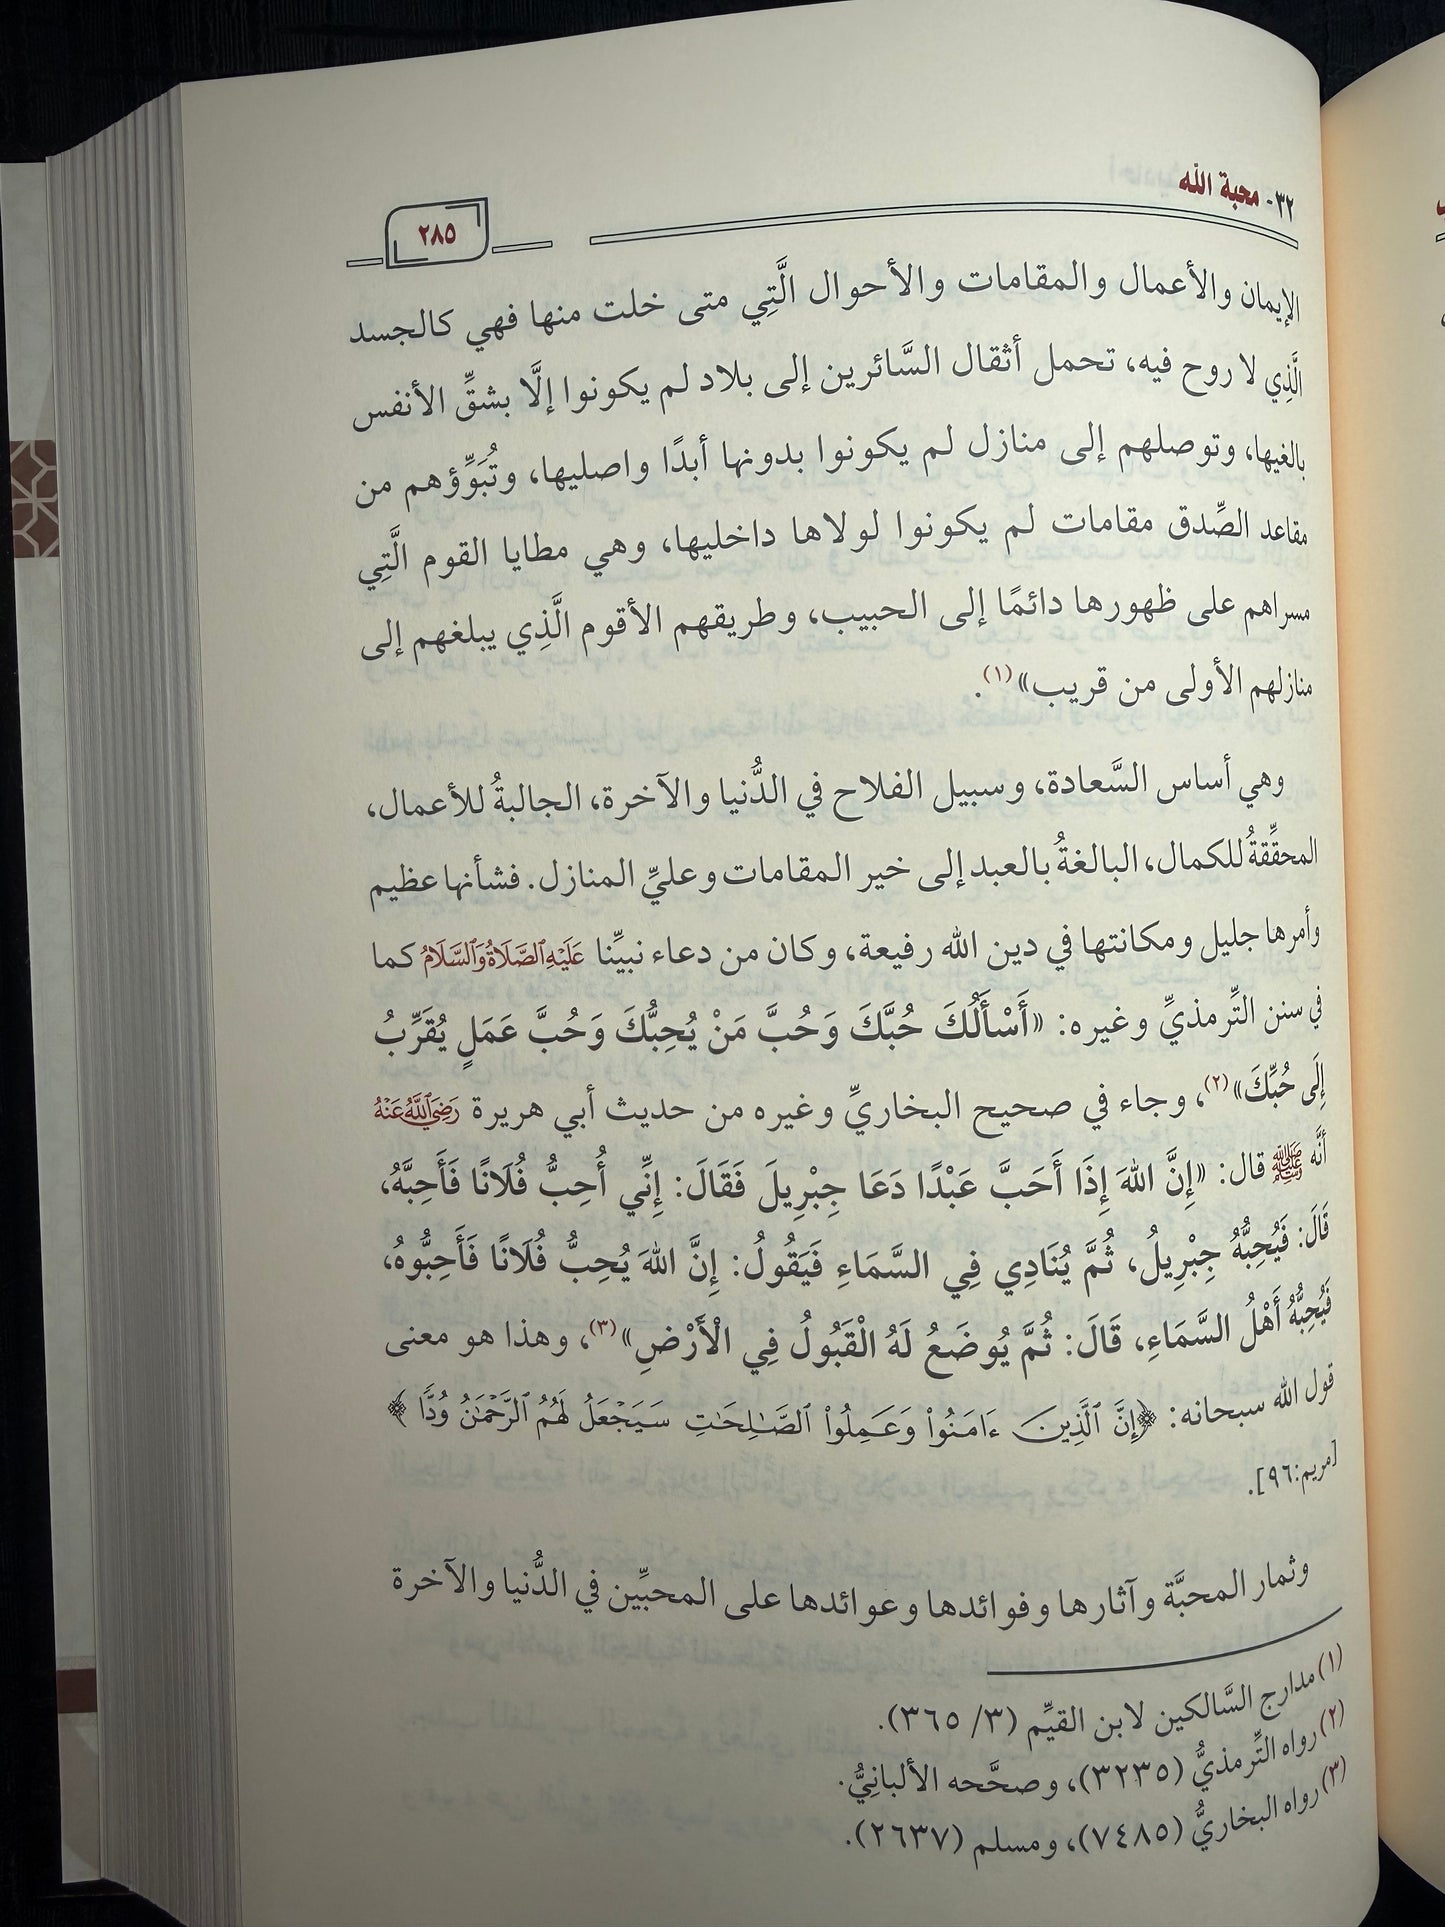 ٣٢- محبة الله
٢٨٥
الإيمان والأعمال والمقامات والأحوال الَّتِي متى خلت منها فهي كالجسد
الَّذِي لا روح فيه، تحمل أثقال السَّائرين إلى بلاد لم يكونوا إلَّا بشقِّ الأنفس
بالغيها، وتوصلهم إلى منازل لم يكونوا بدونها أبدًا واصليها، وتُبَوِّؤهم من
مقاعد الصِّدق مقامات لم يكونوا لولاها داخليها، وهي مطايا القوم الَّتِي
مسراهم على ظهورها دائمًا إلى الحبيب، وطريقهم الأقوم الَّذِي يبلغهم إلى
منازلهم الأولى من قريب»(١).
وهي أساس السَّعادة، وسبيل الفلاح في الدُّنيا والآخرة، الجالبةُ للأعمال،
المحقِّقةُ للكمال، البالغةُ بالعبد إلى خير المقامات وعليِّ المنازل. فشأنها عظيم
وأمرها جليل ومكانتها في دين الله رفيعة، وكان من دعاء نبيِّنا عَلَيْهِ ٱلصَّلَاةُ وَٱلسَّلَامُ كما
في سنن التِّرمذيِّ وغيره: «أَسْأَلُكَ حُبَّكَ وَحُبَّ مَنْ يُحِبُّكَ وَحُبَّ عَمَلٍ يُقَرِّبُ
إِلَى حُبِّكَ»(٢)، وجاء في صحيح البخاريِّ وغيره من حديث أبي هريرة رَضِيَ ٱللَّهُ عَنْهُ
أنَّه ﷺ قال: «إِنَّ اللهَ إِذَا أَحَبَّ عَبْدًا دَعَا جِبْرِيلَ فَقَالَ: إِنِّي أُحِبُّ فُلَانًا فَأَحِبَّهُ،
قَالَ: فَيُحِبُّهُ جِبْرِيلُ، ثُمَّ يُنَادِي فِي السَّمَاءِ فَيَقُولُ: إِنَّ اللهَ يُحِبُّ فُلَانًا فَأَحِبُّوهُ،
فَيُحِبُّهُ أَهْلُ السَّمَاءِ، قَالَ: ثُمَّ يُوضَعُ لَهُ الْقَبُولُ فِي الْأَرْضِ»(٣)، وهذا هو معنى
قول الله سبحانه: ﴿إِنَّ ٱلَّذِينَ ءَامَنُوا۟ وَعَمِلُوا۟ ٱلصَّـٰلِحَـٰتِ سَيَجْعَلُ لَهُمُ ٱلرَّحْمَـٰنُ وُدًّا﴾
[مريم:٩٦].
وثمار المحبَّة وآثارها وفوائدها وعوائدها على المحبِّين في الدُّنيا والآخرة
(١) مدارج السَّالكين لابن القيِّم (٣/ ٣٦٥).
(٢) رواه التِّرمذيُّ (٣٢٣٥)، وصحَّحه الألبانيُّ.
(٣) رواه البخاريُّ (٧٤٨٥)، ومسلم (٢٦٣٧).